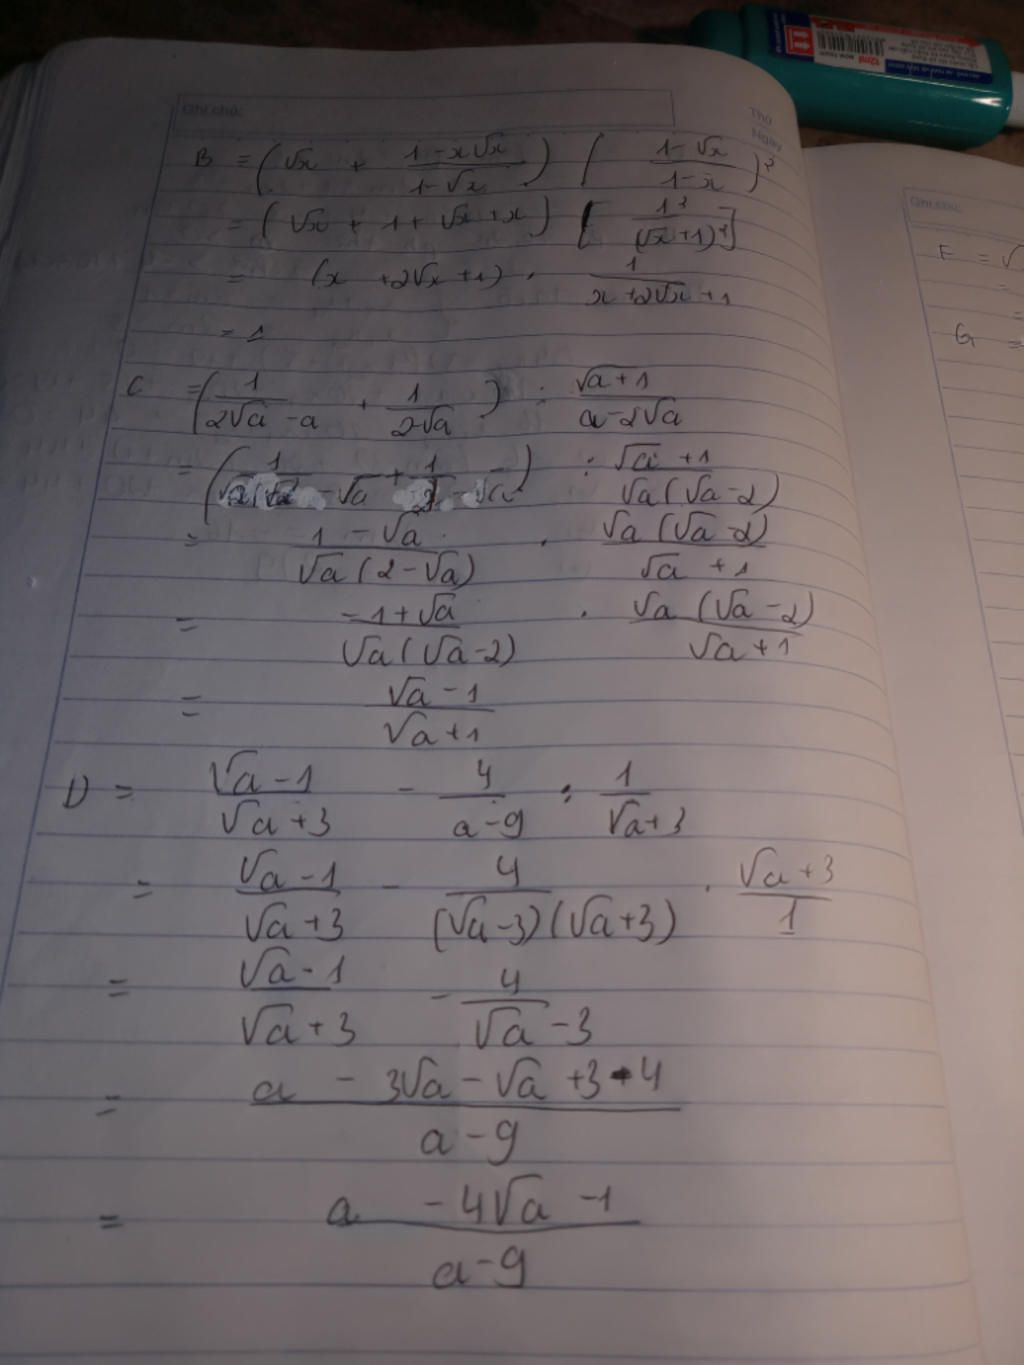 Ghi chú:
Thứ
Ngày
B = (√x + (1-x√x)/(1-√x)) ((1-√x)/(1-x))²
= (√x + 1 + √x + x) [1²/(√x+1)²]
= (x + 2√x + 1) . 1/(x+2√x+1)
= 1
C = (1/(2√a - a) + 1/(2-√a)) : (√a+1)/(a-2√a)
: (√a+1)/(√a(√a-2))
= (1-√a)/(√a(2-√a)) . (√a(√a-2))/(√a+1)
= (-1+√a)/(√a(√a-2)) . (√a(√a-2))/(√a+1)
= (√a-1)/(√a+1)
D = (√a-1)/(√a+3) - 4/(a-9) : 1/(√a+3)
= (√a-1)/(√a+3) - 4/((√a-3)(√a+3)) . (√a+3)/1
= (√a-1)/(√a+3) - 4/(√a-3)
= (a - 3√a - √a + 3 - 4)/(a-9)
= (a - 4√a - 1)/(a-9)
Ghi chú:
F = √
=
=
G =